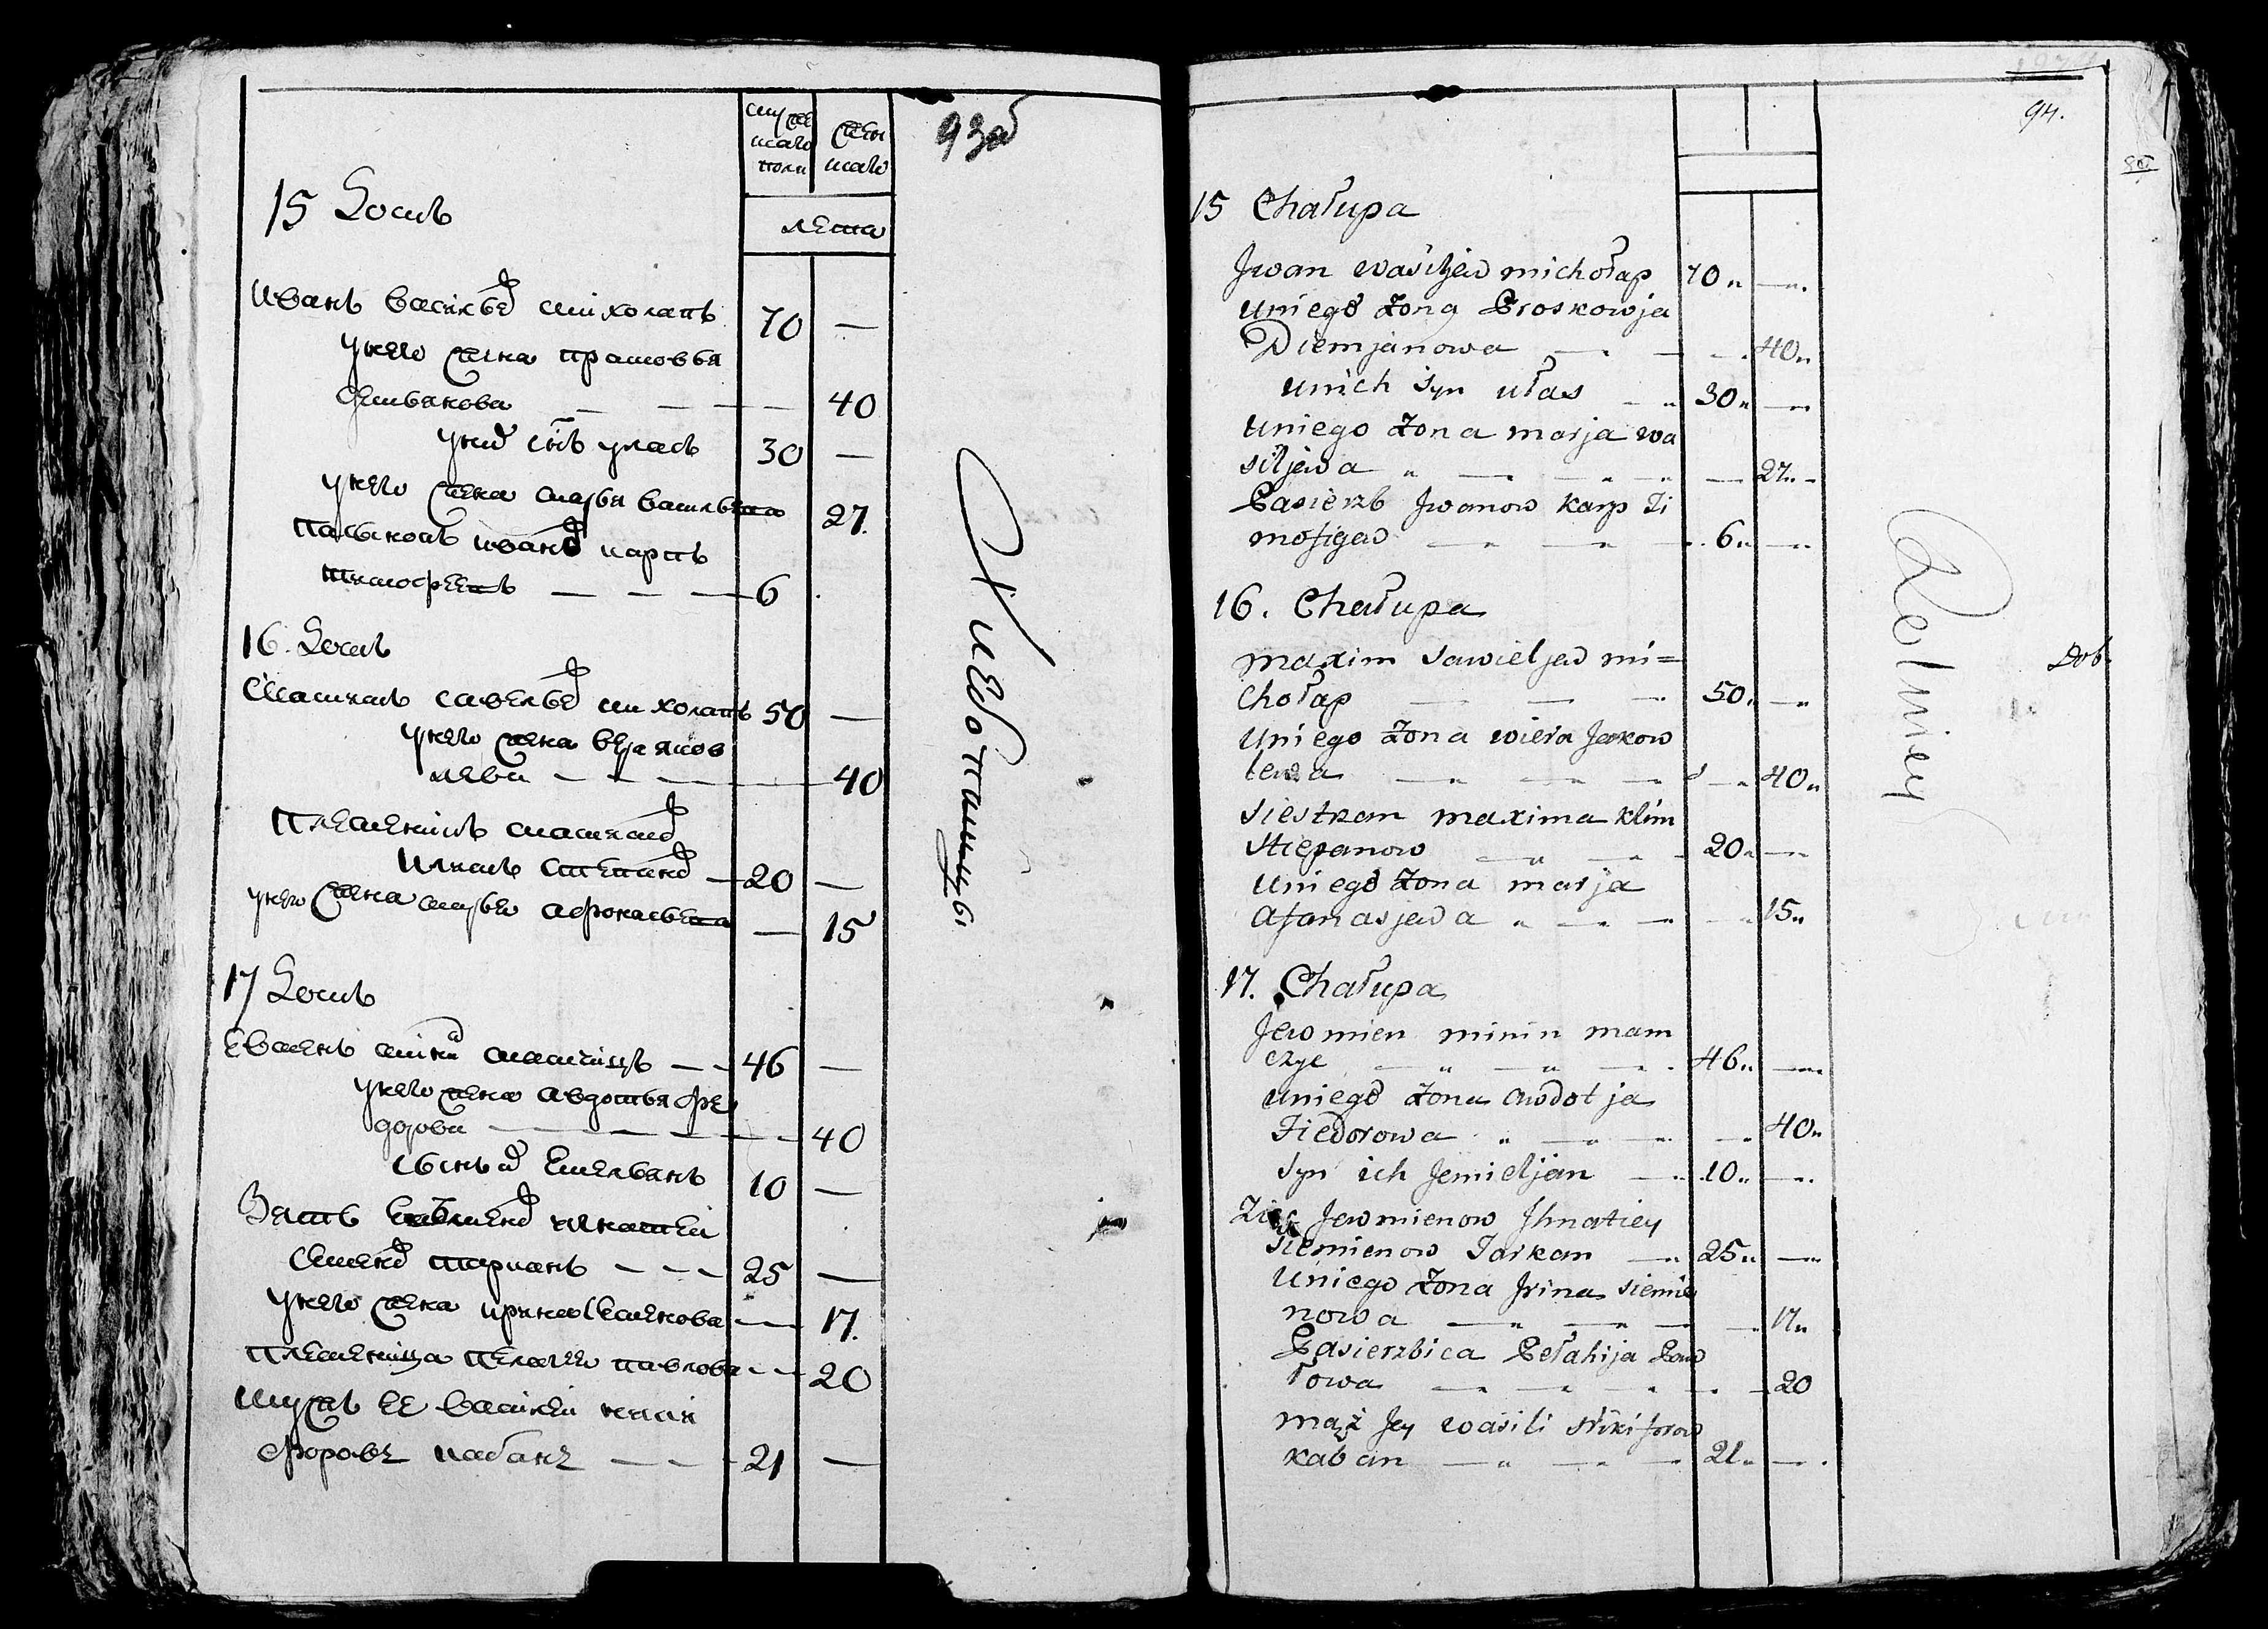 93об
муже
ска
полу
жен
ска
лета
15 Домъ
Иванъ Васильев михолапъ 70 —
унего жена прасковья
Демьянова — — — — 40
уних снъ уласъ 30 —
унего жена марья васильева 27.
пасынокъ иванов карпъ
тимофеевъ — — — 6
16. Домъ
Максимъ савельев михолапъ 50 —
унего жена вера яков
лева — — — — 40
племеникъ максимов
климъ степанов — 20 —
унего жена марья афонасьева — 15
17 Домъ
Евменъ минин мамчицъ — — 46 —
унего жена авдотья фе
дорова — — — — 40
сынъ их Емельянъ 10 —
Зять Евменов игнатей
Семенов тарканъ — — — 25 —
унего жена ирина Семенова — 17.
племеница пелагея павлова — — 20
Мужъ ее Василей ники
форовъ кабанъ — — — 21 —
Хлебопашцы.
94.
15 Chałupa
Jwan wasiljew michołap 70 „ —
uniego żona Proskowja
Diemjanowa — — — 40 „
unich syn ułas — „ 30 „ —
uniego żona marja wa
siljewa „ — „ — 27 „ —
Pasierzb Jwanow karp Ti
mofiejew — — — 6 „ —
16. Chałupa
maxim sawieljew mi=
chołap — — — 50 „ —
uniego żona wiera Jakow
lewa — — — „ 40 „
siestrzan maxima klim
Stiepanow — — 20 „ —
uniego żona marja
afanasjewa „ — — — 15 „
17. Chałupa
Jewmien minin mam
czyc — „ — „ — 46 „ —
uniego żona awdotja
Fiedorowa „ — — — 40 „
syn ich Jemieljan — „ 10 „ —
Zięć Jewmienow Jhnatiey
siemienow Tarkan — „ 25 „ —
uniego żona Jrina siemie
nowa — — — 17 „
Pasierzbica Pełahija Paw
łowa — — — — 20
mąż Jey wasili Nikiforow
kaban — „ — — 21 „ —
Rolniey
Dob.